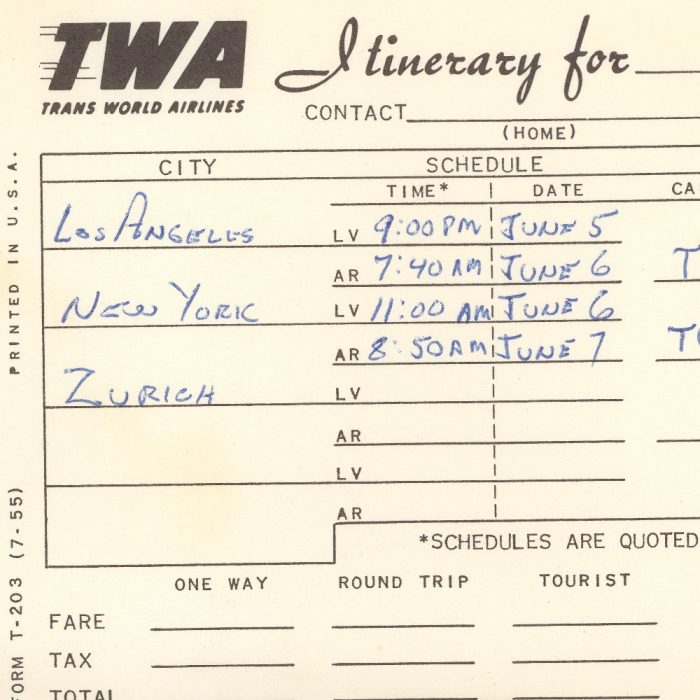 TWA Itinerary for
TRANS WORLD AIRLINES
CONTACT
(HOME)
CITY SCHEDULE
TIME* DATE CA
Los Angeles LV 9:00 PM June 5
AR 7:40 AM June 6 T
New York LV 11:00 AM June 6
AR 8:50 AM June 7
Zurich LV
AR
LV
AR
*SCHEDULES ARE QUOTED
ONE WAY ROUND TRIP TOURIST
FARE
TAX
TOTAL
FORM T-203 (7-55) PRINTED IN U.S.A.